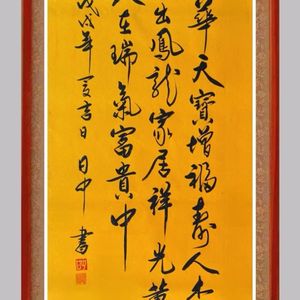 華天寶增福壽人
出鳳龍家居祥光萬
在瑞氣富貴中
戊戌年夏吉日日中書